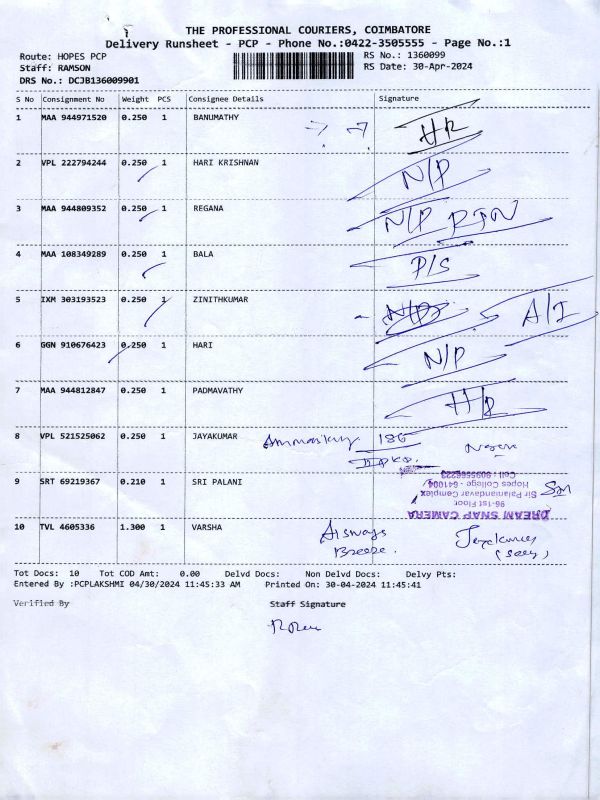 THE PROFESSIONAL COURIERS, COIMBATORE
Delivery Runsheet - PCP - Phone No.:0422-3505555 - Page No.:1
Route: HOPES PCP RS No.: 1360099
Staff: RAMSON RS Date: 30-Apr-2024
DRS No.: DCJB136009901
S No Consignment No Weight PCS Consignee Details Signature
1 MAA 944971520 0.250 1 BANUMATHY
2 VPL 222794244 0.250 1 HARI KRISHNAN N/P
3 MAA 944809352 0.250 1 REGANA N/P RTN
4 MAA 108349289 0.250 1 BALA P/S
5 IXM 303193523 0.250 1 ZINITHKUMAR A/I
6 GGN 910676423 0.250 1 HARI N/P
7 MAA 944812847 0.250 1 PADMAVATHY
8 VPL 521525062 0.250 1 JAYAKUMAR
9 SRT 69219367 0.210 1 SRI PALANI SM
DREAM SNAP CAMERA
96-1st Floor
Sir Palaniandavar Complex
Hopes College - 641004
10 TVL 4605336 1.300 1 VARSHA
Breeze.
Tot Docs: 10 Tot COD Amt: 0.00 Delvd Docs: Non Delvd Docs: Delvy Pts:
Entered By :PCPLAKSHMI 04/30/2024 11:45:33 AM Printed On: 30-04-2024 11:45:41
Verified By Staff Signature